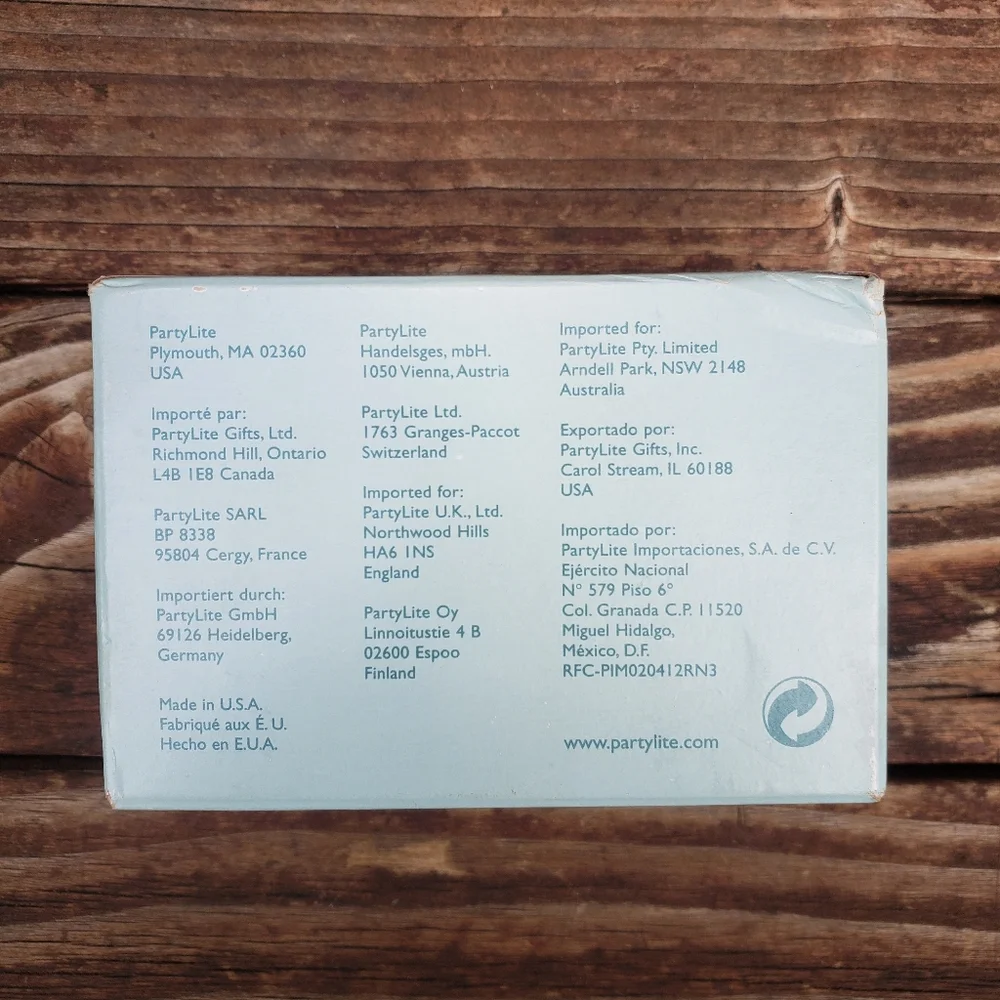 PartyLite
Plymouth, MA 02360
USA
Importé par:
PartyLite Gifts, Ltd.
Richmond Hill, Ontario
L4B 1E8 Canada
PartyLite SARL
BP 8338
95804 Cergy, France
Importiert durch:
PartyLite GmbH
69126 Heidelberg,
Germany
Made in U.S.A.
Fabriqué aux É. U.
Hecho en E.U.A.
PartyLite
Handelsges, mbH.
1050 Vienna, Austria
PartyLite Ltd.
1763 Granges-Paccot
Switzerland
Imported for:
PartyLite U.K., Ltd.
Northwood Hills
HA6 1NS
England
PartyLite Oy
Linnoitustie 4 B
02600 Espoo
Finland
Imported for:
PartyLite Pty. Limited
Arndell Park, NSW 2148
Australia
Exportado por:
PartyLite Gifts, Inc.
Carol Stream, IL 60188
USA
Importado por:
PartyLite Importaciones, S.A. de C.V.
Ejército Nacional
N° 579 Piso 6°
Col. Granada C.P. 11520
Miguel Hidalgo,
México, D.F.
RFC-PIM020412RN3
www.partylite.com